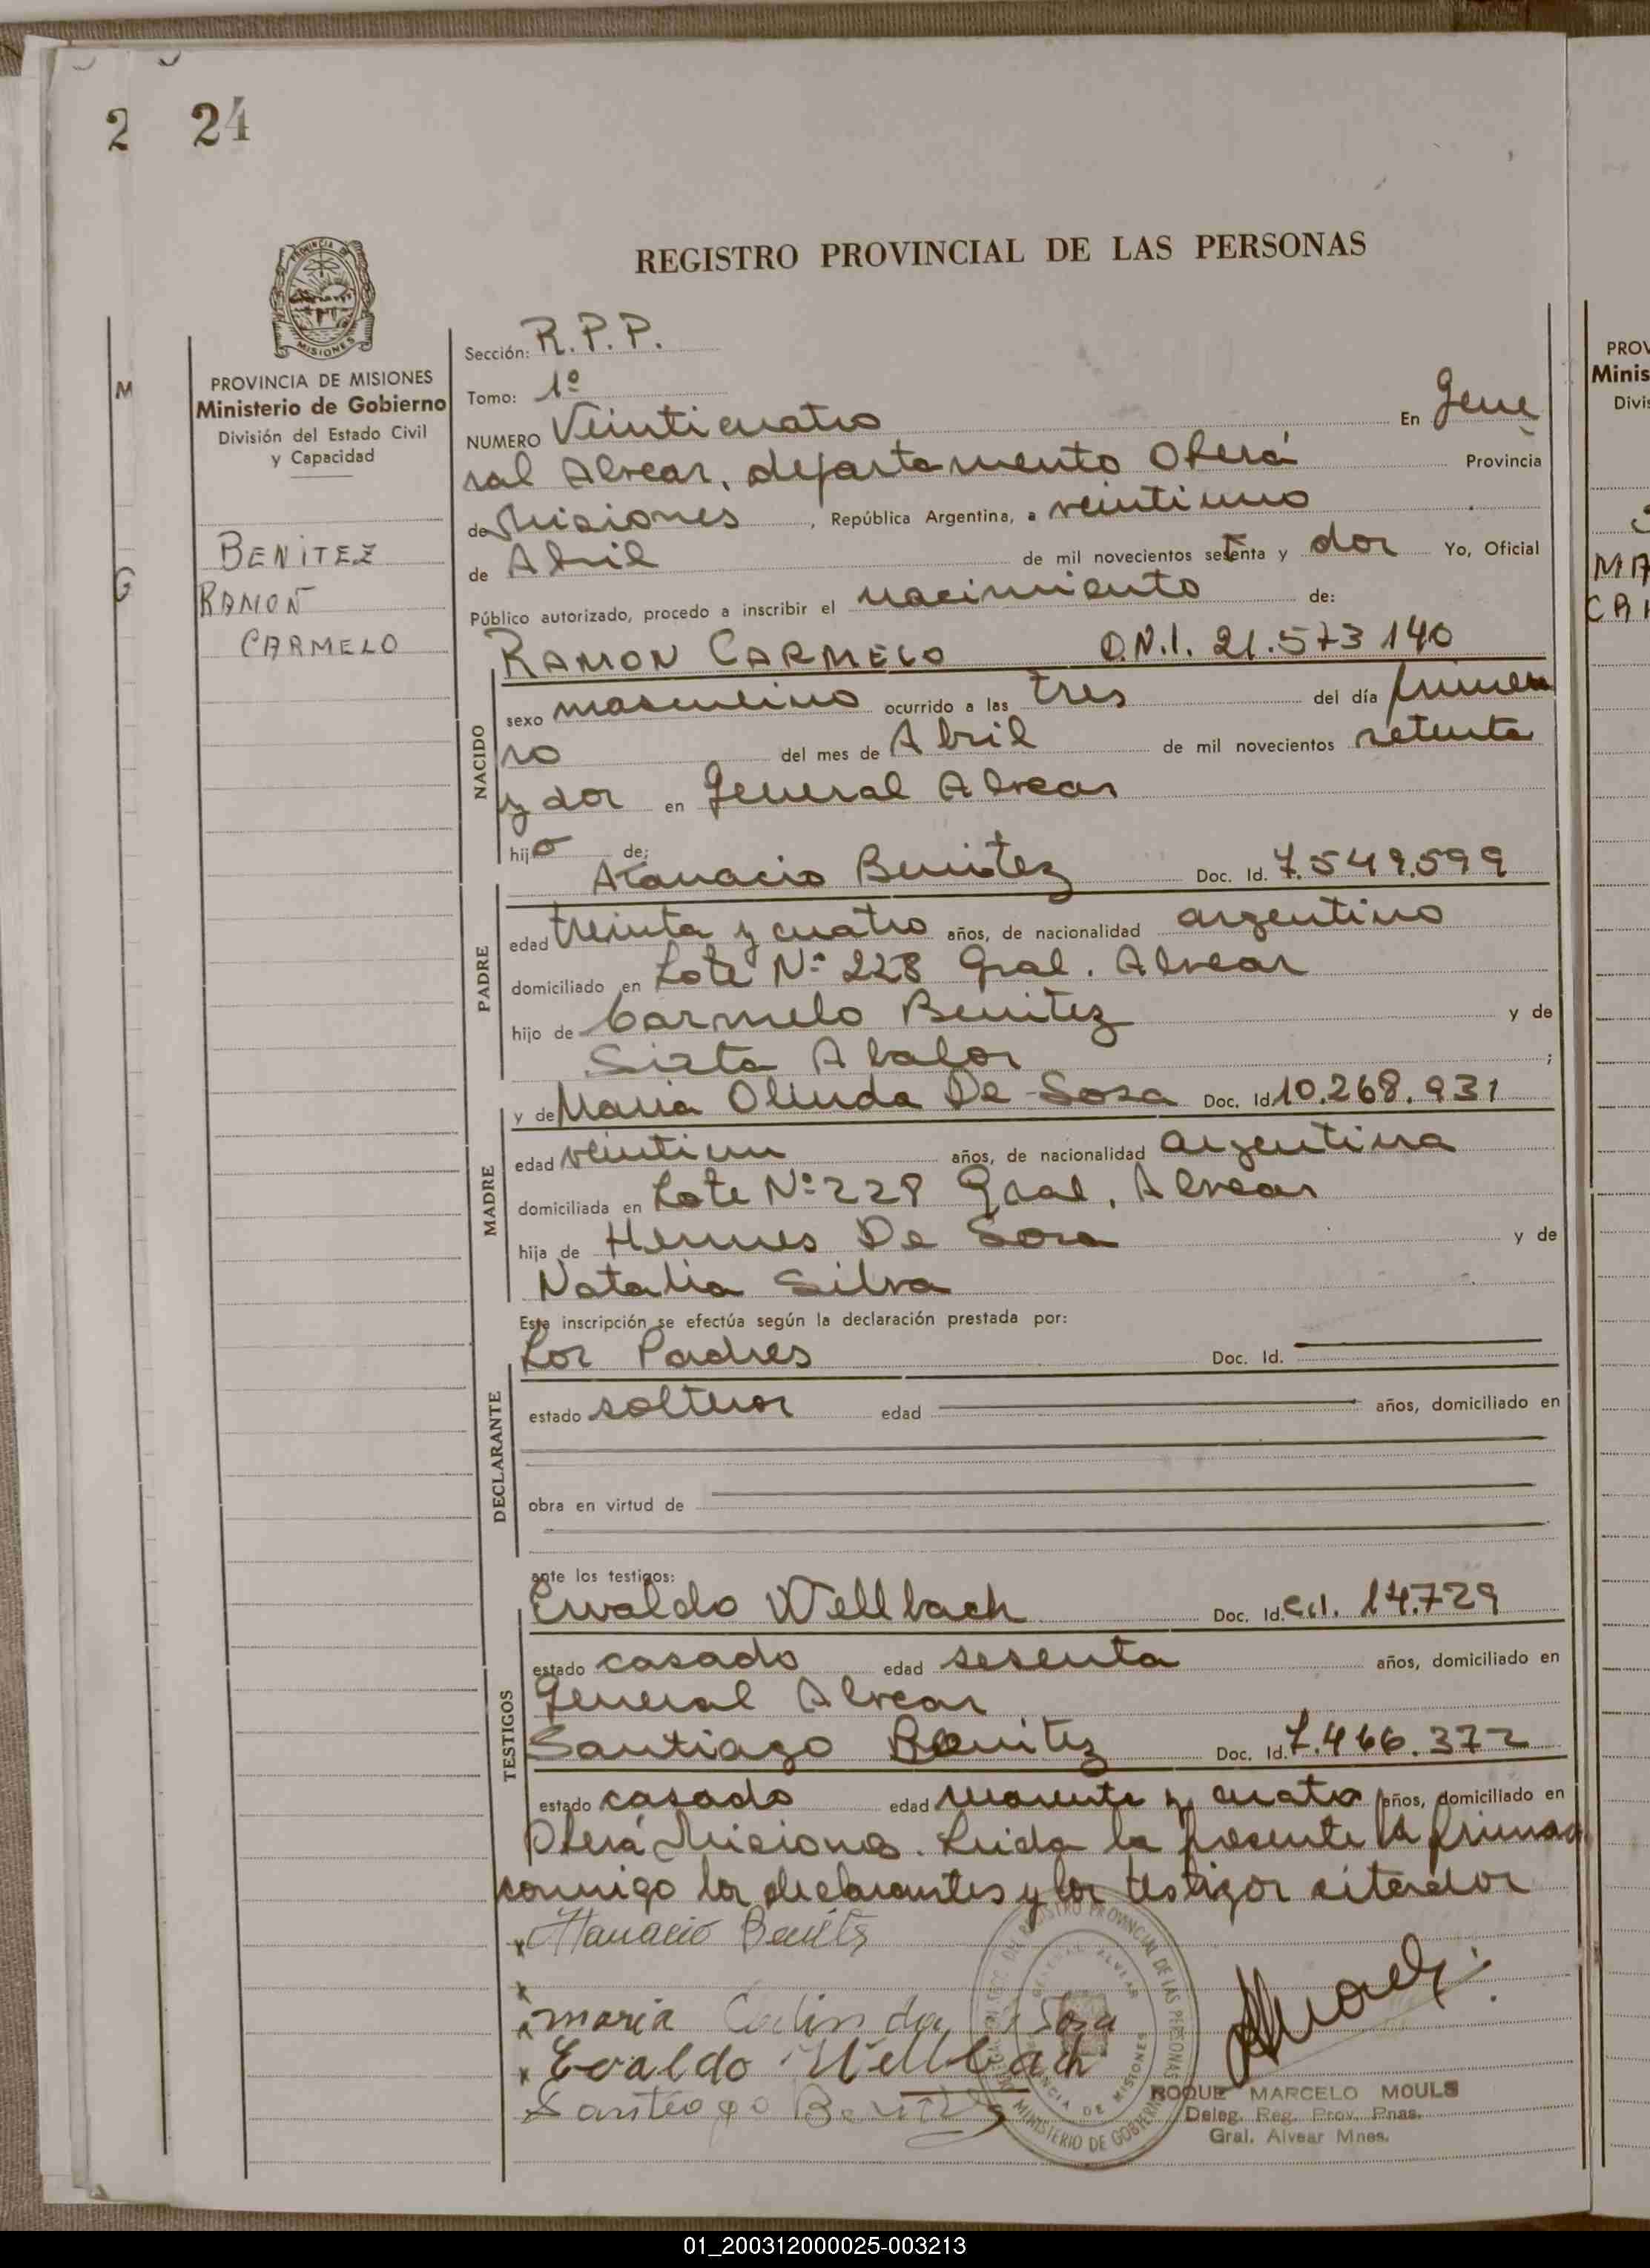 2 24
REGISTRO PROVINCIAL DE LAS PERSONAS
MISIONES
PROVINCIA DE MISIONES
Ministerio de Gobierno
División del Estado Civil
y Capacidad
BENITEZ
RAMON
CARMELO
Sección: R.P.P.
Tomo: 1º
NUMERO Veinticuatro En Gene
ral Alvear, departamento Oberá Provincia
de Misiones, República Argentina, a veintiuno
de Abril de mil novecientos setenta y dos Yo, Oficial
Público autorizado, procedo a inscribir el nacimiento de:
RAMON CARMELO D.N.I. 21.573140
NACIDO
sexo masculino ocurrido a las tres del día
ro del mes de Abril de mil novecientos setenta
y dos en General Alvear
hijo de:
Atanacio Benitez Doc. Id. 7.549.599
PADRE
edad treinta y cuatro años, de nacionalidad argentino
domiciliado en Lote Nº 228 Gral. Alvear
hijo de Carmelo Benitez y de
Sixta Abalos ;
y de Maria Olinda De Sosa Doc. Id. 10.268.931
MADRE
edad veintiun años, de nacionalidad argentina
domiciliada en Lote Nº 228 Gral. Alvear
hija de Hermes De Sosa y de
Natalia Silva
Esta inscripción se efectúa según la declaración prestada por:
Los Padres Doc. Id.
DECLARANTE
estado solteros edad años, domiciliado en
obra en virtud de
ante los testigos:
Ewaldo Wellbach Doc. Id. 14.729
TESTIGOS
estado casado edad sesenta años, domiciliado en
General Alvear
Santiago Benitez Doc. Id. 7.466.372
estado casado edad y cuatro años, domiciliado en
Oberá Misiones. Leida la presente la firman
conmigo los declarantes y los testigos citados
Atanacio Benitez
maria Sosa
Evaldo Wellbach
Santiago Benitez
REGISTRO PROVINCIAL DE LAS PERSONAS
MINISTERIO DE GOBIERNO
PROVINCIA DE MISIONES
ROQUE MARCELO MOULS
Deleg. Reg. Prov. Pnas.
Gral. Alvear Mnes.
PROV
Minis
Divis
M
G
01_200312000025-003213